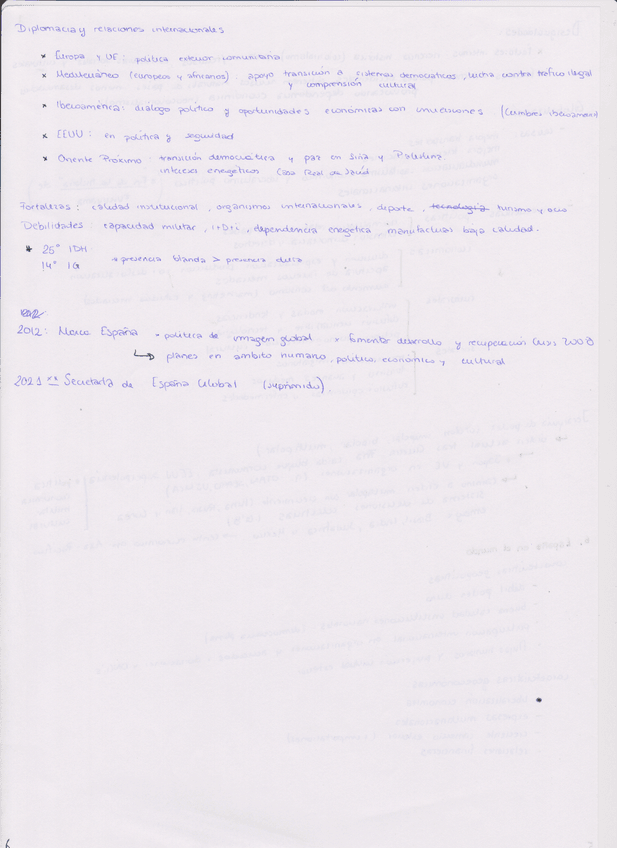 Diplomacia y relaciones internacionales
* Europa y UE: política exterior comunitaria
* Mediterráneo (europeos y africanos): apoyo transición a sistemas democráticos, lucha contra tráfico ilegal
y comprensión cultural
* Iberoamérica: diálogo político y oportunidades económicas con inversiones (Cumbres Iberoameri)
* EEUU: en política y seguridad
* Oriente Próximo: transición democrática y paz en Siria y Palestina.
intereses energéticos Casa Real de Saúd.
Fortalezas: calidad institucional, organismos internacionales, deporte, tecnología turismo y ocio
Debilidades: capacidad militar, I+D+i, dependencia energética, manufacturas baja calidad.
* 25º IDH
14º IG → presencia blanda > presencia dura
2012: Marca España * política de imagen global * fomentar desarrollo y recuperación crisis 2008
↳ planes en ámbito humano, político, económico y cultural
2021 Secretaría de España Global (suprimido)